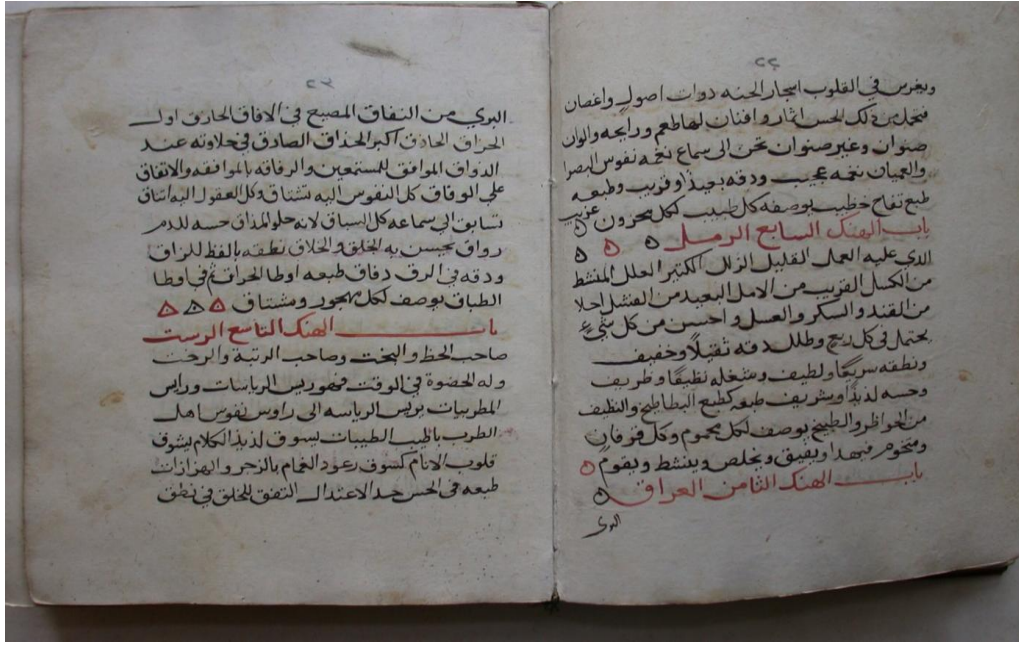 ٢٢
ويغرس في القلوب اسجار الحنه دوات اصول واغصان
فتحمل من دلك الحس اثمار وافنان لها طعم ورايحه والوان
صنوان وغير صنوان تحن الى سماع نغمه نفوس البصرا
والعميان نغمه عجيب ودقه بعيد او قريب وطبعه
طبع تفاح خطيب يوصفه كل طبيب لكل محزون عزيب
باب الهنك السابع الرمل
الدي عليه العمل القليل الزلل الكثير العلل المنشط
من الكسل القريب من الامل البعيد من الفشل احلا
من القند والسكر والعسل واحسن من كل شيء
يحتمل في كل ريح وطلل دقه ثقيلا وخفيف
ونطقه سريعًا ولطيف وشغله نظيفًا وظريف
وحسه لديدًا وشريف طبعه كطبع البطاطيخ والنظيف
من الخواطر والطبيخ يوصف لكل محموم وكل فرفان
ومتخوم فيهدا ويفيق ويخلص وينشط ويقوم
باب الهنك الثامن العراق
البري
٢٣
البري من النفاق المصبح في الافاق الحادق اول
الحراق الحادق اكبر الحداق الصادق في حلاوته عند
الدواق الموافق للمستمعين والرفاقه بالموافقه والاتفاق
على الوفاق كل النفوس اليه تشتاق وكل العقول اليه اتناق
تسابق الى سماعه كل السباق لانه حلو المداق حسه للدم
رواق يحبس به الخلق والحلاق نطقه بالفظ للزاق
ودقه في الرق دقاق طبعه اوطا الحراق ثم في اوطا
الطباق يوصف لكل مهجور ومشتاق
باب الهنك التاسع الرست
صاحب الحظ والبخت وصاحب الرتبة والرخت
وله الحضوة في الوقت فهو ريس الرياسات ورايس
المطربيات يريس الرياسه الى راوس نفوس اهل
الطرب باطيب الطيبات يسوق لديد الكلام ليشوف
قلوب الانام كسوف رعود الغمام بالزجر والهزازات
طبعه في الحس حد الاعتدال التفق للخلق في نطق